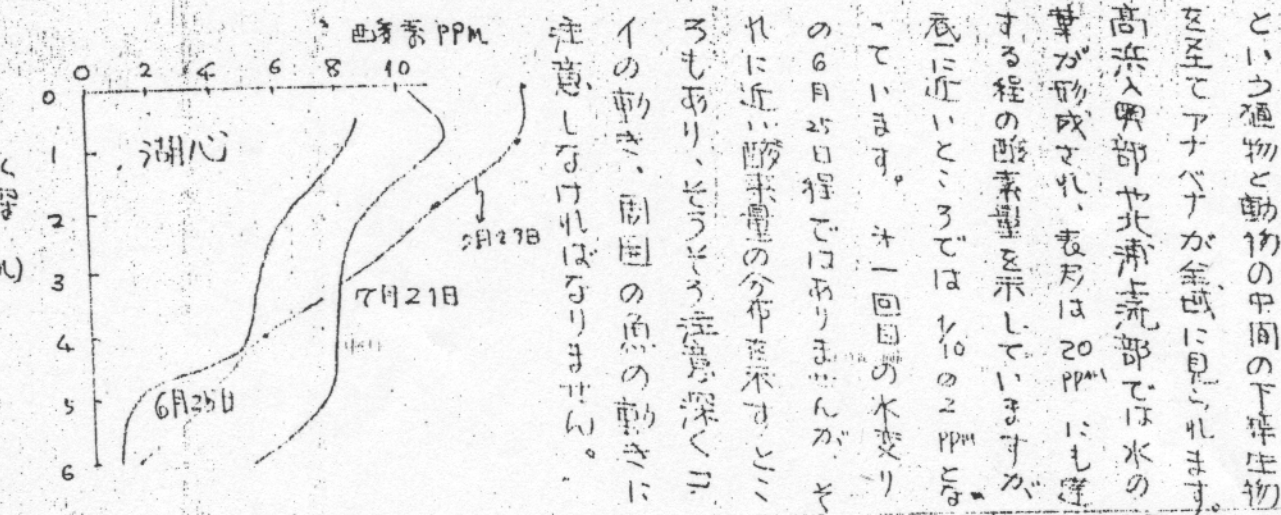 という植物と動物の中間の下等生物
を至てアナベナが全域に見られます。
高浜入奥部や北浦上流部では水の
華が形成され、表層は20ppmにも達
する程の酸素量を示していますが
底に近いところでは1/10の2ppmとな
っています。 第一回目の水変り
の6月25日程ではありませんが、そ
れに近い酸素量の分布を示すとこ
ろもあり、そろそろ注意深くコ
イの動き、周囲の魚の動きに
注意しなければなりません。
酸素 PPM
0 2 4 6 8 10
0
1
2
3
4
5
6
湖心
月29日
7月21日
6月25日